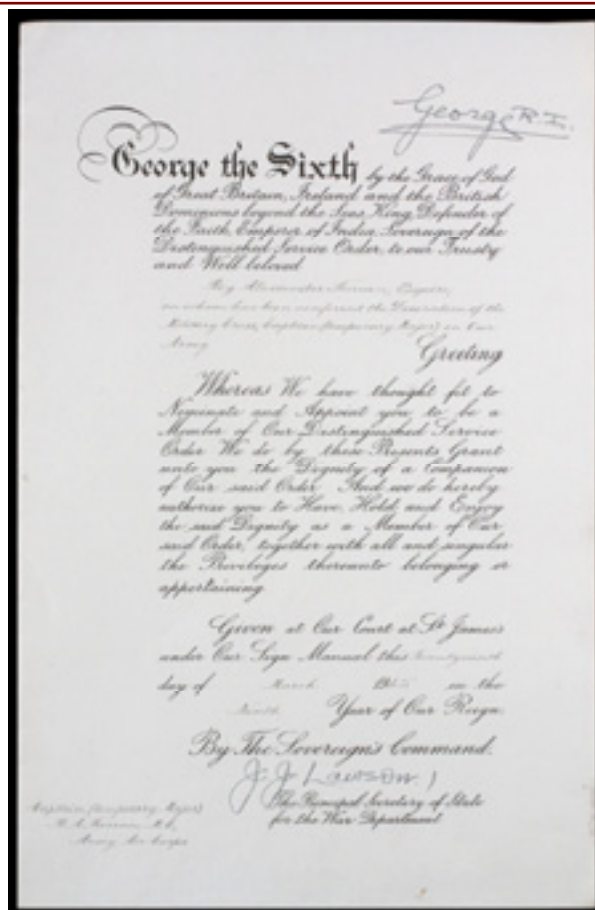 George R.I.
George the Sixth by the Grace of God
of Great Britain, Ireland and the British
Dominions beyond the Seas, King, Defender of
the Faith, Emperor of India, Sovereign of the
Distinguished Service Order, to our Trusty
and Well beloved
Roy Alexander Esquire,
on whom has been conferred the Decoration of the
Military Cross, Captain (temporary Major) in Our
Army
Greeting
Whereas We have thought fit to
Nominate and Appoint you to be a
Member of Our Distinguished Service
Order We do by these Presents Grant
unto you the Dignity of a Companion
of Our said Order And we do hereby
authorise you to Have, Hold and Enjoy
the said Dignity as a Member of Our
said Order, together with all and singular
the Privileges thereunto belonging or
appertaining.
Given at Our Court at St. James's
under Our Sign Manual this
day of March 19 in the
Ninth Year of Our Reign.
By The Sovereign's Command.
J. J. Lawson
The Principal Secretary of State
for the War Department
Captain (temporary Major)
M.C.,
Army Air Corps